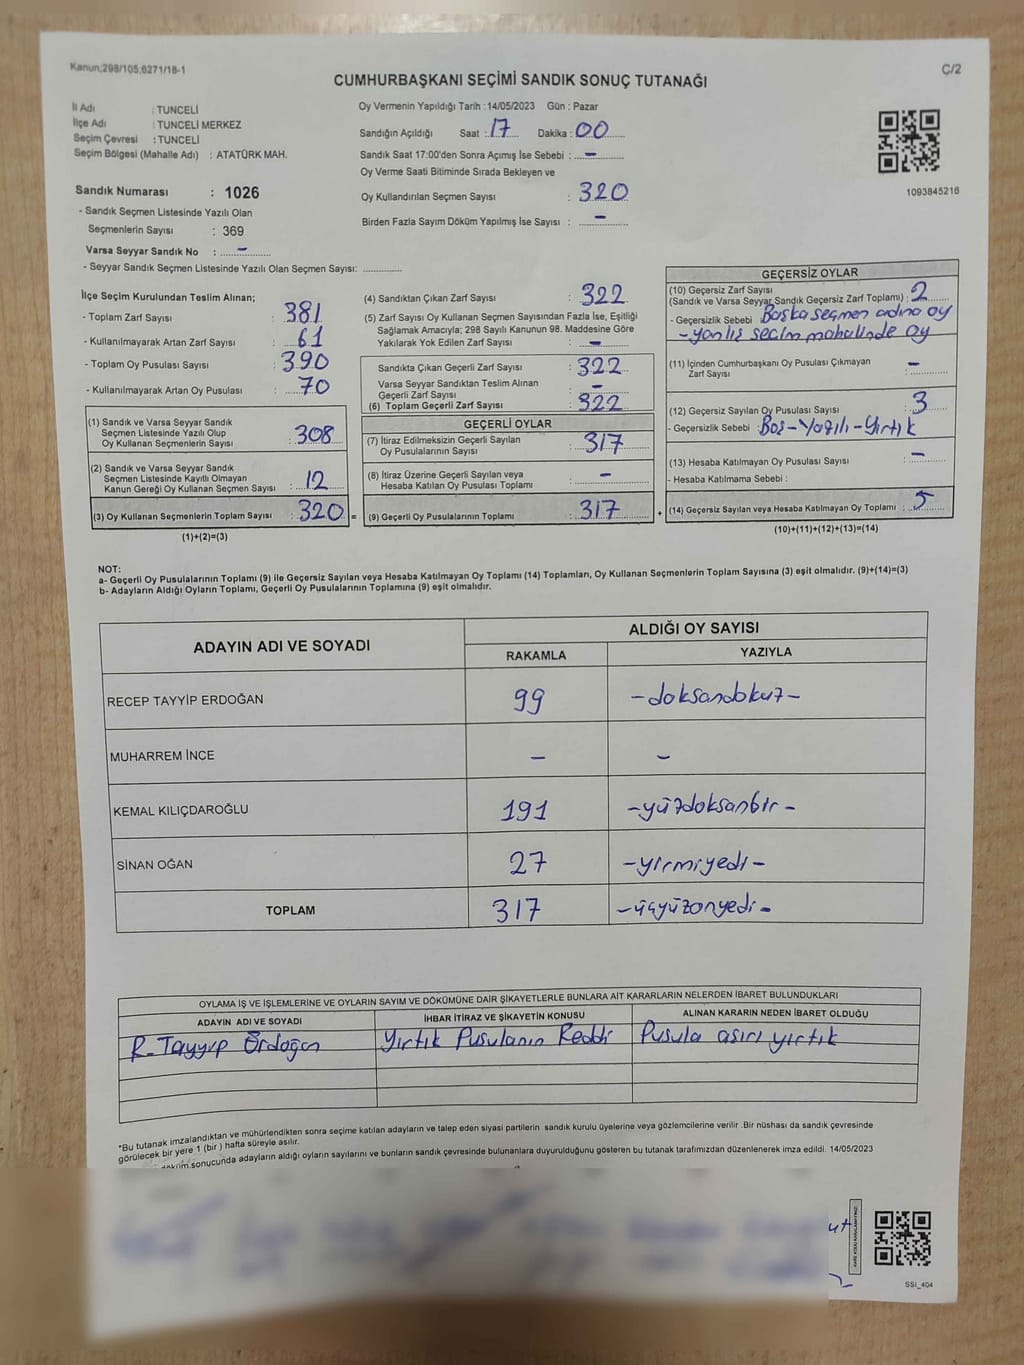 Kanun;298/105;6271/18-1
Ç/2
CUMHURBAŞKANI SEÇİMİ SANDIK SONUÇ TUTANAĞI
İl Adı : TUNCELİ
İlçe Adı : TUNCELİ MERKEZ
Seçim Çevresi : TUNCELİ
Seçim Bölgesi (Mahalle Adı) : ATATÜRK MAH.
Sandık Numarası : 1026
- Sandık Seçmen Listesinde Yazılı Olan
Seçmenlerin Sayısı : 369
Varsa Seyyar Sandık No : -
- Seyyar Sandık Seçmen Listesinde Yazılı Olan Seçmen Sayısı: ............
Oy Vermenin Yapıldığı Tarih :14/05/2023 Gün : Pazar
Sandığın Açıldığı Saat : 17 Dakika : 00
Sandık Saat 17:00'den Sonra Açımış İse Sebebi : -
Oy Verme Saati Bitiminde Sırada Bekleyen ve
Oy Kullandırılan Seçmen Sayısı : 320
Birden Fazla Sayım Döküm Yapılmış İse Sayısı : -
1093845216
İlçe Seçim Kurulundan Teslim Alınan;
- Toplam Zarf Sayısı : 381
- Kullanılmayarak Artan Zarf Sayısı : 61
- Toplam Oy Pusulası Sayısı : 390
- Kullanılmayarak Artan Oy Pusulası : 70
(1) Sandık ve Varsa Seyyar Sandık
Seçmen Listesinde Yazılı Olup
Oy Kullanan Seçmenlerin Sayısı : 308
(2) Sandık ve Varsa Seyyar Sandık
Seçmen Listesinde Kayıtlı Olmayan
Kanun Gereği Oy Kullanan Seçmen Sayısı : 12
(3) Oy Kullanan Seçmenlerin Toplam Sayısı : 320 =
(1)+(2)=(3)
(4) Sandıktan Çıkan Zarf Sayısı : 322
(5) Zarf Sayısı Oy Kullanan Seçmen Sayısından Fazla İse, Eşitliği
Sağlamak Amacıyla; 298 Sayılı Kanunun 98. Maddesine Göre
Yakılarak Yok Edilen Zarf Sayısı : -
Sandıkta Çıkan Geçerli Zarf Sayısı : 322
Varsa Seyyar Sandıktan Teslim Alınan
Geçerli Zarf Sayısı : -
(6) Toplam Geçerli Zarf Sayısı : 322
GEÇERLİ OYLAR
(7) İtiraz Edilmeksizin Geçerli Sayılan
Oy Pusulalarının Sayısı : 317
(8) İtiraz Üzerine Geçerli Sayılan veya
Hesaba Katılan Oy Pusulası Toplamı : -
(9) Geçerli Oy Pusulalarının Toplamı : 317 +
GEÇERSİZ OYLAR
(10) Geçersiz Zarf Sayısı
(Sandık ve Varsa Seyyar Sandık Geçersiz Zarf Toplamı) : 2
- Geçersizlik Sebebi : Başka seçmen adına oy
- yanlış seçim mahalinde oy
(11) İçinden Cumhurbaşkanı Oy Pusulası Çıkmayan
Zarf Sayısı : -
(12) Geçersiz Sayılan Oy Pusulası Sayısı : 3
- Geçersizlik Sebebi : Boş-Yazılı-Yırtık
(13) Hesaba Katılmayan Oy Pusulası Sayısı : -
- Hesaba Katılmama Sebebi :
(14) Geçersiz Sayılan veya Hesaba Katılmayan Oy Toplamı : 5
(10)+(11)+(12)+(13)=(14)
NOT:
a- Geçerli Oy Pusulalarının Toplamı (9) ile Geçersiz Sayılan veya Hesaba Katılmayan Oy Toplamı (14) Toplamları, Oy Kullanan Seçmenlerin Toplam Sayısına (3) eşit olmalıdır. (9)+(14)=(3)
b- Adayların Aldığı Oyların Toplamı, Geçerli Oy Pusulalarının Toplamına (9) eşit olmalıdır.
ADAYIN ADI VE SOYADI ALDIĞI OY SAYISI
RAKAMLA YAZIYLA
RECEP TAYYİP ERDOĞAN 99 -doksandokuz-
MUHARREM İNCE - -
KEMAL KILIÇDAROĞLU 191 -yüzdoksanbir-
SİNAN OĞAN 27 -yirmiyedi-
TOPLAM 317 -üçyüzonyedi-
OYLAMA İŞ VE İŞLEMLERİNE VE OYLARIN SAYIM VE DÖKÜMÜNE DAİR ŞİKAYETLERLE BUNLARA AİT KARARLARIN NELERDEN İBARET BULUNDUKLARI
ADAYIN ADI VE SOYADI İHBAR İTİRAZ VE ŞİKAYETİN KONUSU ALINAN KARARIN NEDEN İBARET OLDUĞU
R-Tayyip Erdoğan Yırtık Pusulanın Reddi Pusula aşırı yırtık
*Bu tutanak imzalandıktan ve mühürlendikten sonra seçime katılan adayların ve talep eden siyasi partilerin sandık kurulu üyelerine veya gözlemcilerine verilir .Bir nüshası da sandık çevresinde
görülecek bir yere 1 (bir ) hafta süreyle asılır.
sonucunda adayların aldığı oyların sayılarını ve bunların sandık çevresinde bulunanlara duyurulduğunu gösteren bu tutanak tarafımızdan düzenlenerek imza edildi. 14/05/2023
SSI_404